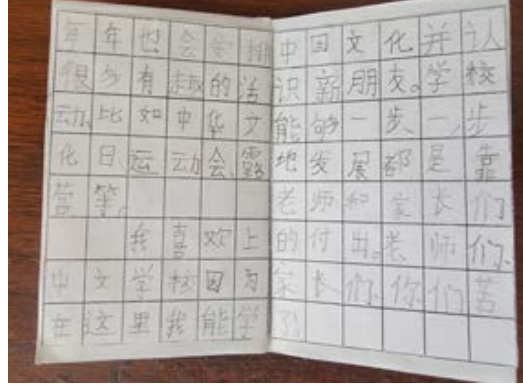 年年也会安排
很多有趣的活
动、比如中华文
化日、运动会、露
营等。
我喜欢上
中文学校因为
在这里我能学
中国文化并认
识新朋友。学校
能够一步、一步
地发展都是靠
老师和家长们
的付出。老师们、
家长们、你们苦
了!